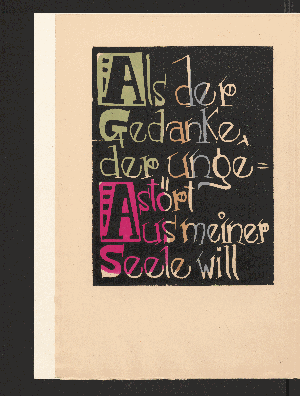 Als der
Gedanke,
der unge=
stört
Aus meiner
Seele will